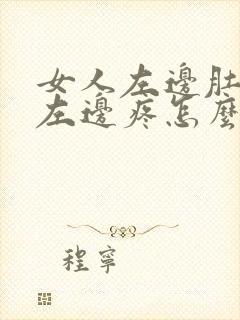 女人左邊肚
左邊疼怎麼
程寧